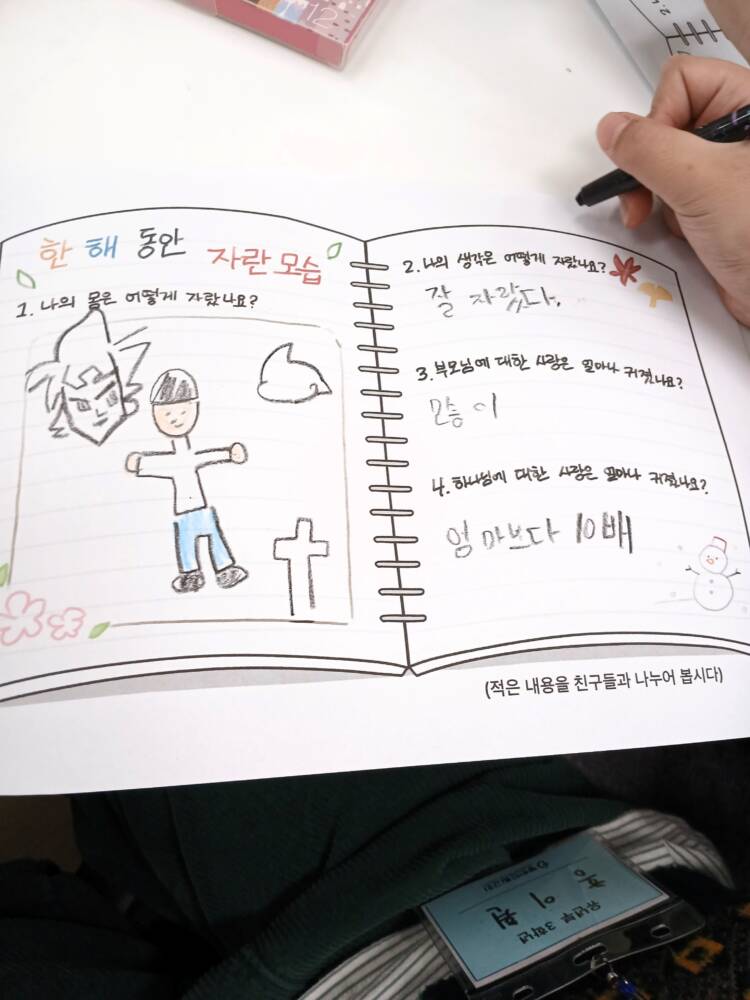 12
한 해 동안 자란 모습
1. 나의 몸은 어떻게 자랐나요?
2. 나의 생각은 어떻게 자랐나요?
잘 자랐다.
3. 부모님에 대한 사랑은 얼마나 커졌나요?
많이
4. 하나님에 대한 사랑은 얼마나 커졌나요?
엄마보다 10배
(적은 내용을 친구들과 나누어 봅시다)
유년부 3학년
홍이원